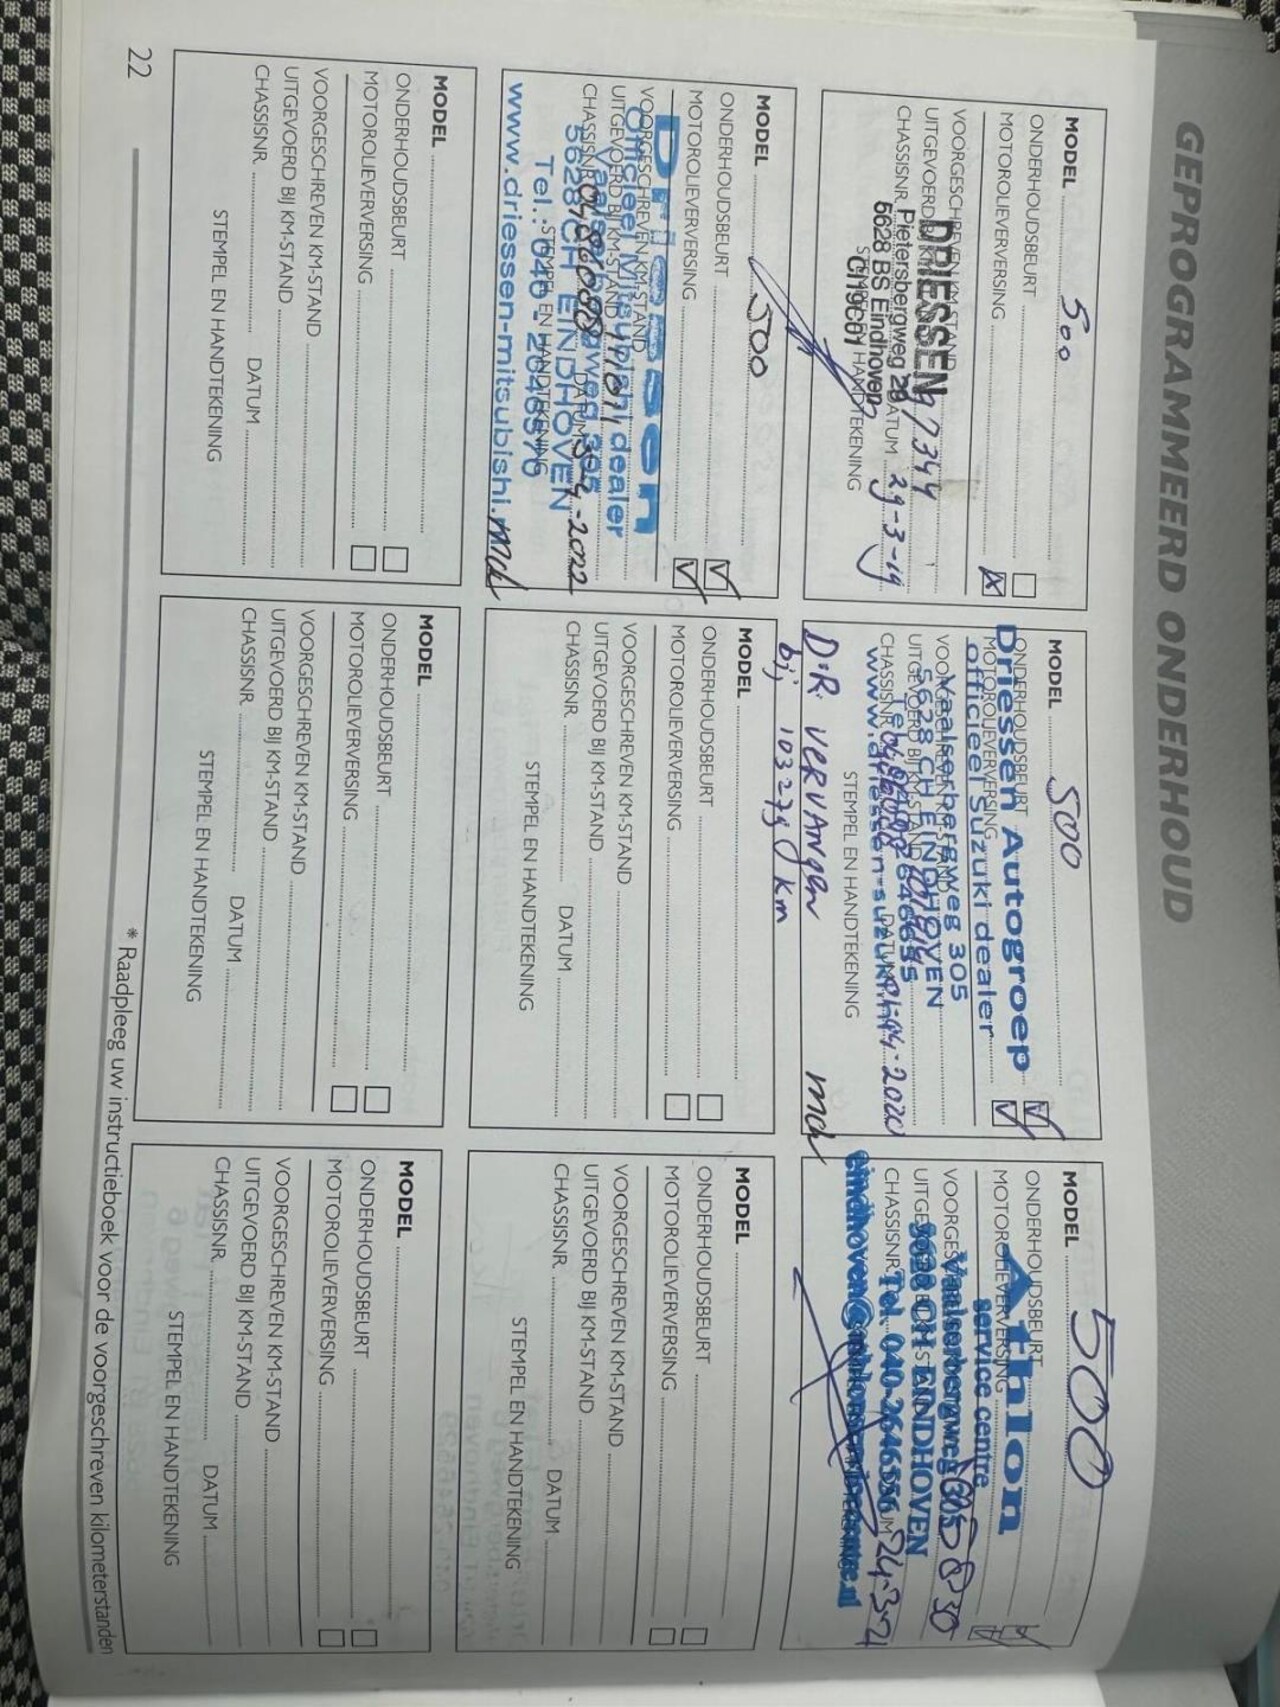 GEPROGRAMMEERD ONDERHOUD
MODEL 500
ONDERHOUDSBEURT
MOTOROLIEVERVERSING
VOORGESCHREVEN KM-STAND
UITGEVOERD BIJ KM-STAND 97344
CHASSISNR. DATUM 29-3-19
STEMPEL EN HANDTEKENING
DRIESSEN
Pietersbergweg 29
5628 BS Eindhoven
CI19C01
MODEL 500
ONDERHOUDSBEURT
MOTOROLIEVERVERSING
VOORGESCHREVEN KM-STAND
UITGEVOERD BIJ KM-STAND
CHASSISNR. DATUM
STEMPEL EN HANDTEKENING
Driessen Autogroep
officieel Suzuki dealer
Vaalserbergweg 305
5628 CH EINDHOVEN
D.R. VERVANGEN
bij 103279 km
mch
MODEL 500
ONDERHOUDSBEURT
MOTOROLIEVERVERSING
CHASSISNR. 24-3-21
Athlon
service centre
Vaalserbergweg 305
5628 CH EINDHOVEN
Tel. 040-2646556
MODEL 500
ONDERHOUDSBEURT
MOTOROLIEVERVERSING
VOORGESCHREVEN KM-STAND
UITGEVOERD BIJ KM-STAND
CHASSISNR. DATUM
STEMPEL EN HANDTEKENING
Officieel Mitsubishi dealer
5628 CH EINDHOVEN
www.driessen-mitsubishi.
mch
MODEL
ONDERHOUDSBEURT
MOTOROLIEVERVERSING
VOORGESCHREVEN KM-STAND
UITGEVOERD BIJ KM-STAND
CHASSISNR. DATUM
STEMPEL EN HANDTEKENING
MODEL
ONDERHOUDSBEURT
MOTOROLIEVERVERSING
VOORGESCHREVEN KM-STAND
UITGEVOERD BIJ KM-STAND
CHASSISNR. DATUM
STEMPEL EN HANDTEKENING
MODEL
ONDERHOUDSBEURT
MOTOROLIEVERVERSING
VOORGESCHREVEN KM-STAND
UITGEVOERD BIJ KM-STAND
CHASSISNR. DATUM
STEMPEL EN HANDTEKENING
MODEL
ONDERHOUDSBEURT
MOTOROLIEVERVERSING
VOORGESCHREVEN KM-STAND
UITGEVOERD BIJ KM-STAND
CHASSISNR. DATUM
STEMPEL EN HANDTEKENING
MODEL
ONDERHOUDSBEURT
MOTOROLIEVERVERSING
VOORGESCHREVEN KM-STAND
UITGEVOERD BIJ KM-STAND
CHASSISNR. DATUM
STEMPEL EN HANDTEKENING
* Raadpleeg uw instructieboek voor de voorgeschreven kilometerstanden
22